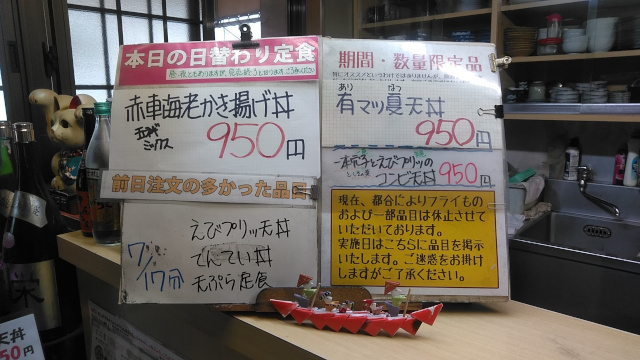 本日の日替わり定食
赤車海老かき揚げ丼
ミックス
950円
前日注文の多かった品目
7/17分
えびプリッ天丼
でにてい丼
天ぷら定食
期間・数量限定品
あり なつ
有マッ夏天丼
950円
一本穴子とえびプリッの
コンビ天丼 950円
現在、都合によりフライもの
および一部品目は休止させて
いただいております。
実施日はこちらに品目を掲示
いたします。ご迷惑をお掛け
しますがご了承ください。
天丼
50円